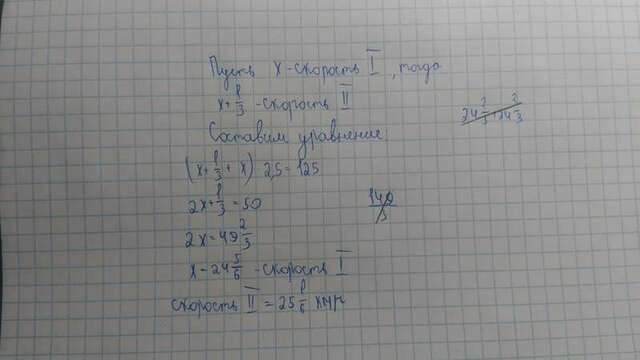 Пусть x - скорость I, тогда
x + 1/3 - скорость II
Составим уравнение
(x + 1/3 + x) 2,5 = 125
2x + 1/3 = 50
2x = 49 2/3
x - 24 5/6 - скорость I
скорость II = 25 1/6 км/ч